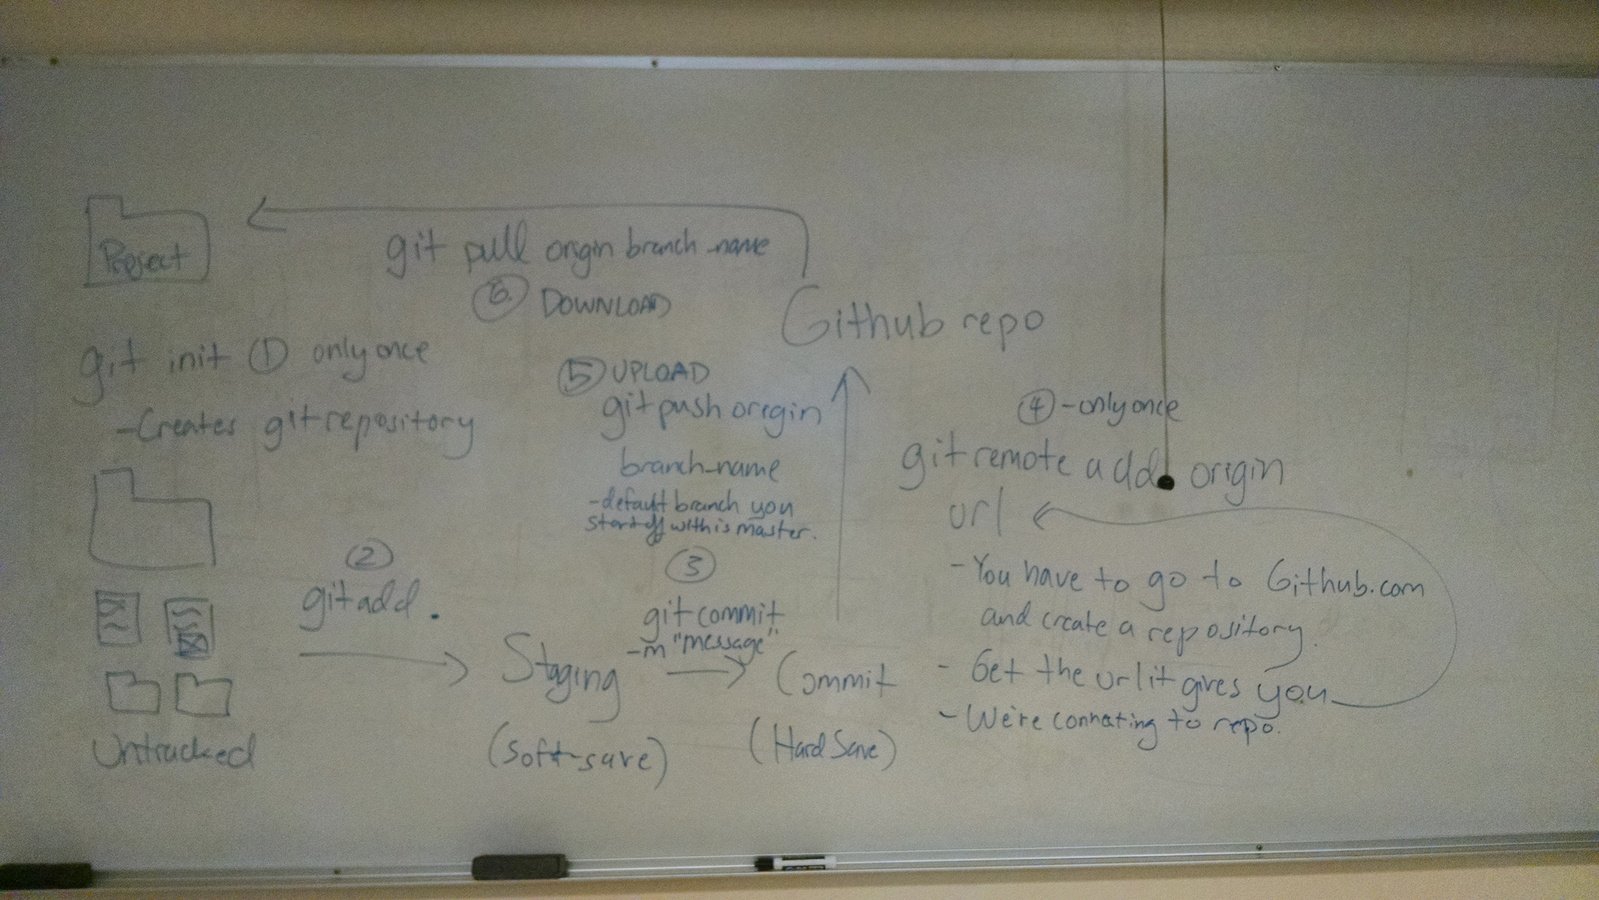 Project
git pull origin branch_name
⑥ DOWNLOAD
Github repo
git init ① only once
-Creates git repository
⑤ UPLOAD
git push origin
branch_name
-default branch you
start off with is master.
④ - only once
git remote add origin
url
- You have to go to Github.com
and create a repository.
- Get the url it gives you
- We're connecting to repo.
②
git add .
③
git commit
-m "message"
Staging
(soft-save)
Commit
(Hard Save)
Untracked